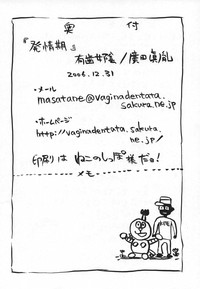 奥付
『発情期』
有歯女陰/廣田眞胤
2006.12.31
・メール
masatane@vaginadentata.
sakura.ne.jp
・ホームページ
http://vaginadentata.sakura.
ne.jp/
印刷は ねこのしっぽ様だョ!
メモ